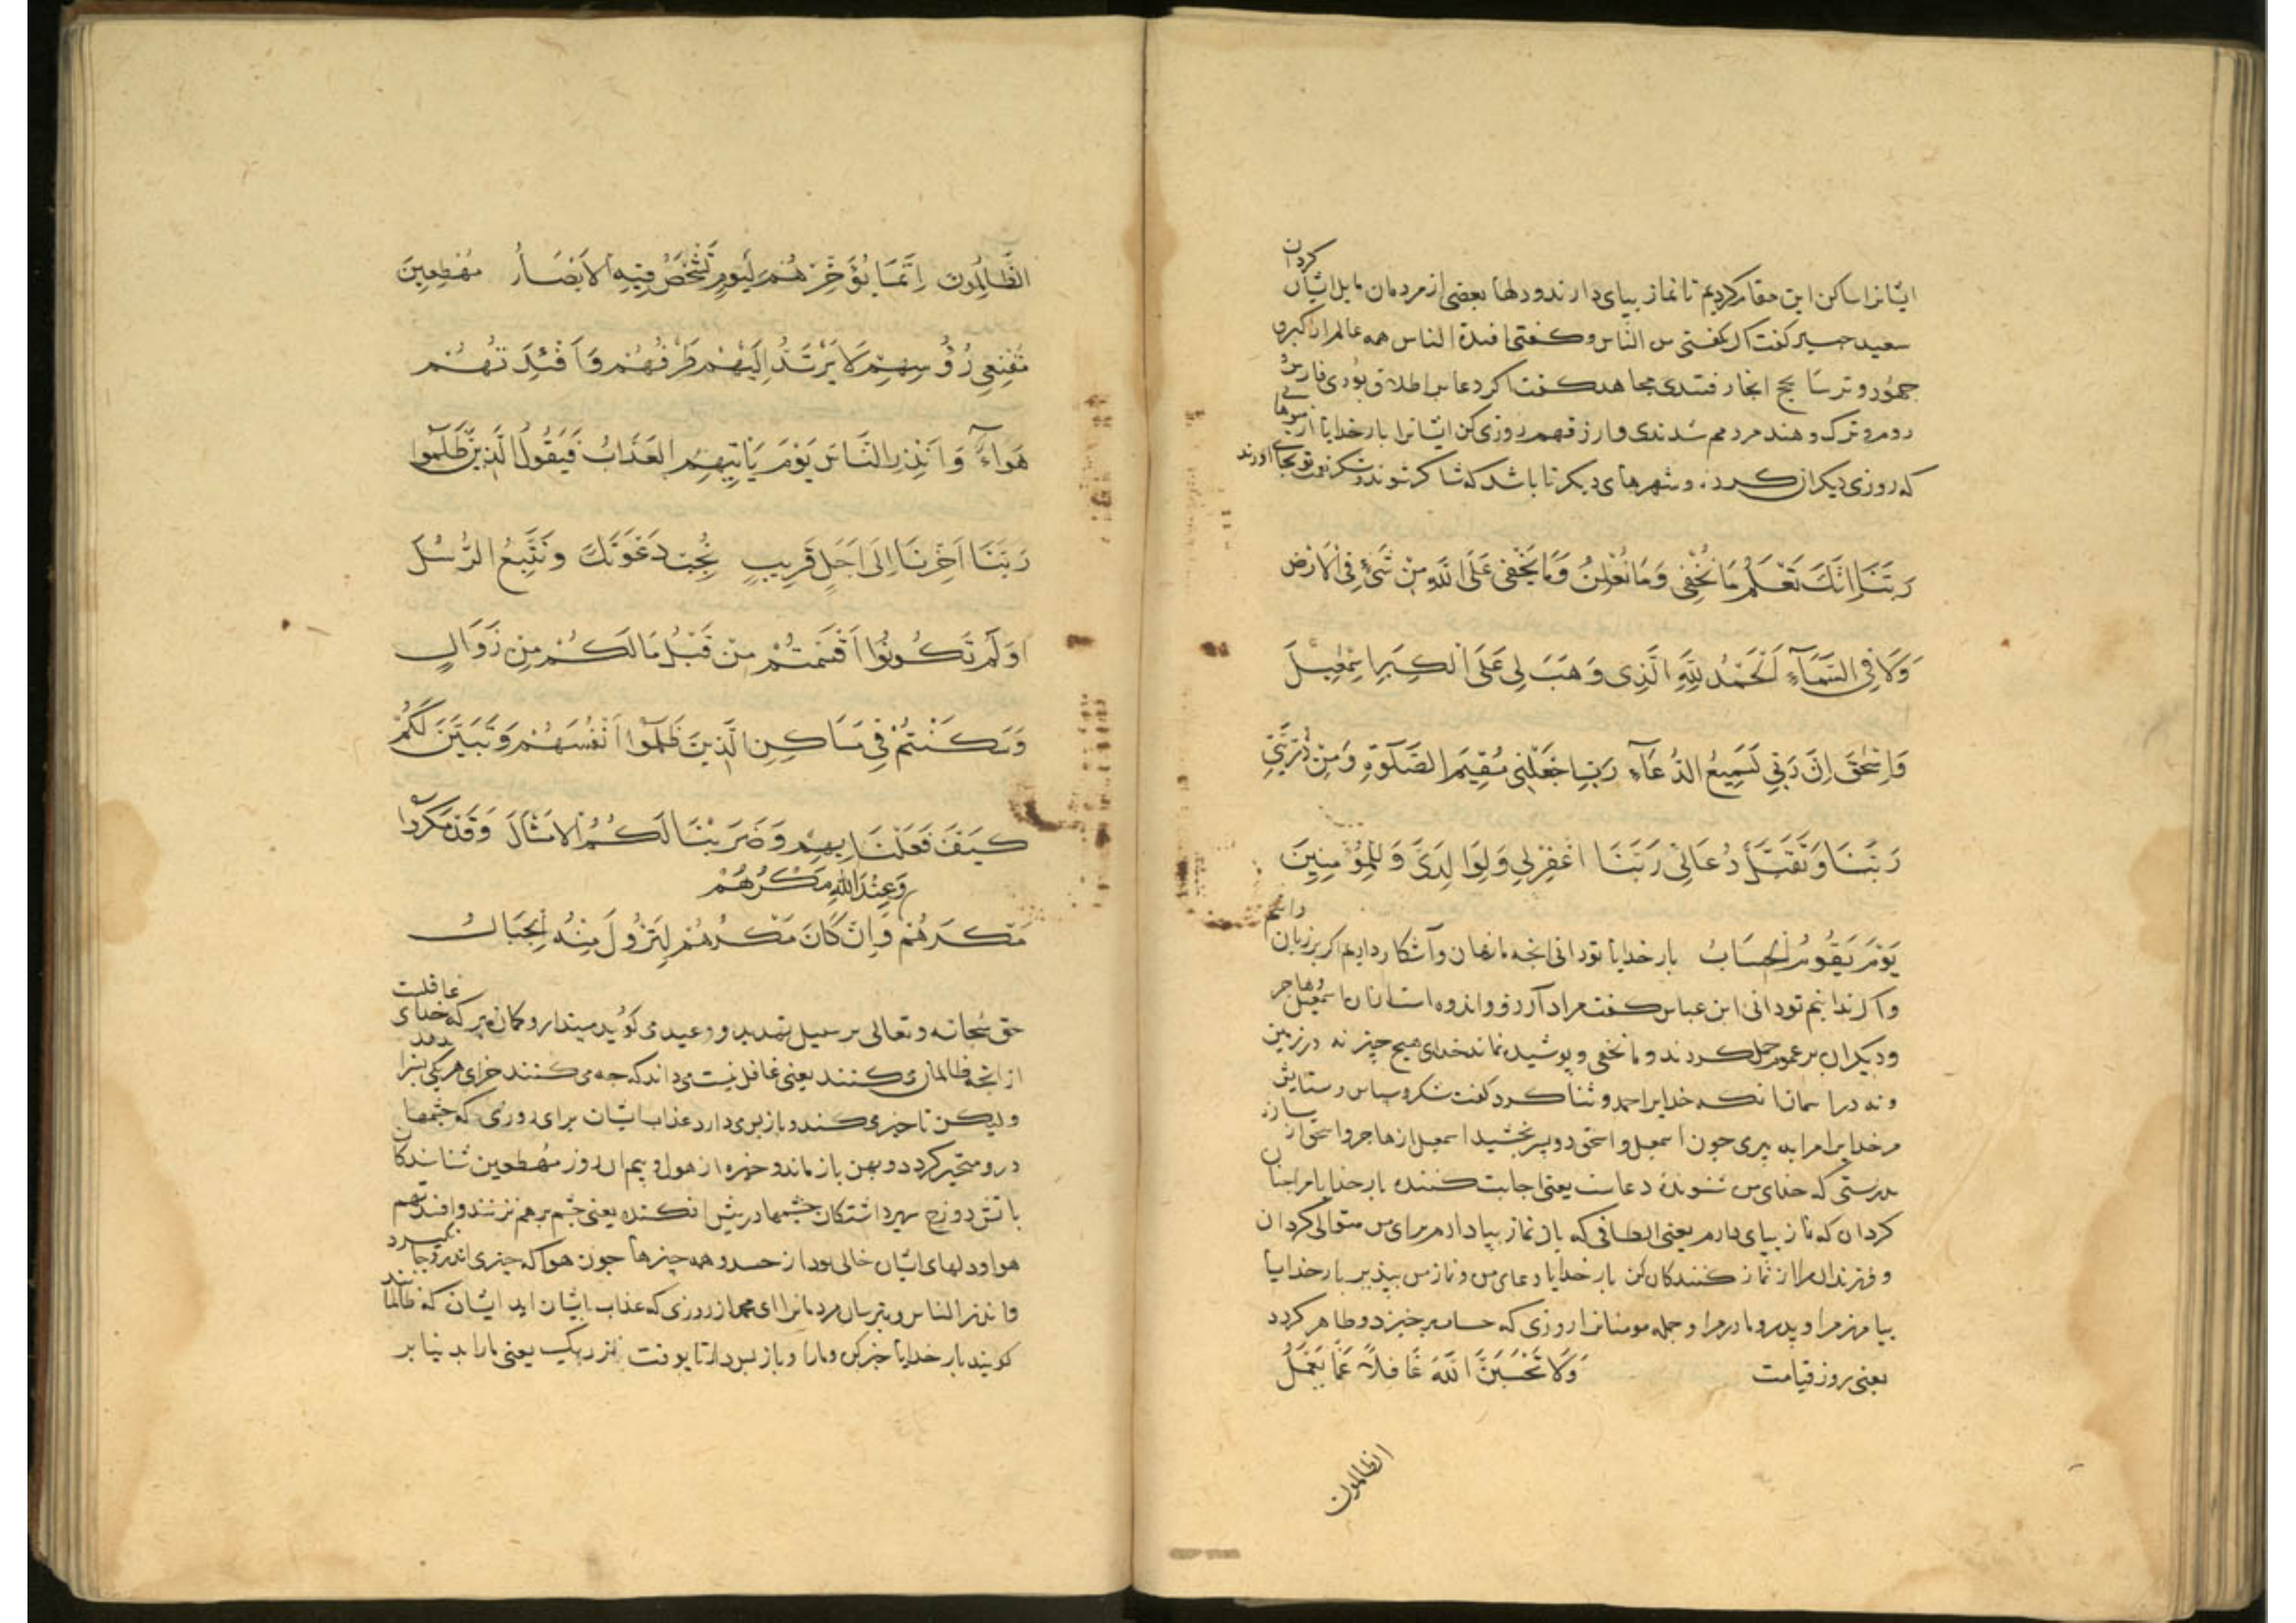 ایشانرا ساکن این مقام کردیم تا نماز بپای دارند و دلها بعضی از مردمان مایل ایشان کردان
سعید جبیر کفت اکر نکفتی من الناس و کفتی افئدة الناس همه عالم از کبر و
جهود و ترسا بحج انجا رفتندی مجاهد کفت اکر دعا بر اطلاق بودی فارس
روم و ترک و هند مردم شدندی وارزقهم روزی کن ایشانرا بار خدایا از میوها
که روزی دیکران کرد و شهرهای دیکر تا باشد که شاکر شوند و شکر نعمت تو بجای اورند
رَبَّنَا اِنَّكَ تَعْلَمُ مَا نُخْفِی وَمَا نُعْلِنُ وَمَا یَخْفی عَلَی اللَّهِ مِنْ شَیْءٍ فِی الْاَرْضِ
وَلَا فِی السَّمَآءِ اَلْحَمْدُ لِلَّهِ الَّذِی وَهَبَ لِی عَلَی الْکِبَرِ اِسْمٰعِیلَ
وَاِسْحٰقَ اِنَّ رَبِّی لَسَمِیعُ الدُّعَآءِ رَبِّ اجْعَلْنِی مُقِیمَ الصَّلٰوةِ وَمِنْ ذُرِّیَّتِی
رَبَّنَا وَتَقَبَّلْ دُعَائِ رَبَّنَا اغْفِرْ لِی وَلِوَالِدَیَّ وَلِلْمُؤْمِنِینَ
یَوْمَ یَقُومُ الْحِسَابُ بار خدایا تو دانی انجه ما نهان و آشکارا داریم اکر بر زبان رانیم
واکر نرانیم تو دانی ابن عباس کفت مراد آرزو و اندوه است با اسمعیل و هاجر
و دیکران بر عموم حمل کردند و ما یخفی و پوشیده نماند خدای هیچ چیز نه در زمین
و نه در اسمان انکه خدایرا حمد و ثنا کرد کفت شکر و سپاس و ستایش
مر خدایرا مرا به پیری جون اسمعیل و اسحق دو پسر بخشید اسمعیل از هاجر و اسحق از ساره
بدرستی که خدای من شنونده دعاست یعنی اجابت کننده بار خدایا مرا جنان
کردان که نماز بپای دارم یعنی الطافی که بان نماز بپا دارم برای من متوالی کردان
و فرزندان مرا از نماز کنندکان کن بار خدایا دعای من و نماز من بپذیر بار خدایا
بیامرز مرا و پدر و مادر مرا و جمله مومنانرا روزی که حساب برخیزد و ظاهر کردد
یعنی روز قیامت وَلَا تَحْسَبَنَّ اللَّهَ غَافِلاً عَمَّا یَعْمَلُ
الظالمون
الظَّالِمُونَ اِنَّمَا یُؤَخِّرُهُمْ لِیَوْمٍ تَشْخَصُ فِیهِ الْاَبْصَارُ مُهْطِعِینَ
مُقْنِعِی رُؤُسِهِمْ لَا یَرْتَدُّ اِلَیْهِمْ طَرْفُهُمْ وَاَفْئِدَتُهُمْ
هَوَآءٌ وَاَنْذِرِ النَّاسَ یَوْمَ یَأْتِیهِمُ الْعَذَابُ فَیَقُولُ الَّذِینَ ظَلَمُوا
رَبَّنَا اَخِّرْنَا اِلَی اَجَلٍ قَرِیبٍ نُجِبْ دَعْوَتَكَ وَنَتَّبِعُ الرُّسُلَ
اَوَلَمْ تَکُونُوا اَقْسَمْتُمْ مِنْ قَبْلُ مَا لَکُمْ مِنْ زَوَالٍ
وَسَکَنْتُمْ فِی مَسَاکِنِ الَّذِینَ ظَلَمُوا اَنْفُسَهُمْ وَتَبَیَّنَ لَکُمْ
کَیْفَ فَعَلْنَا بِهِمْ وَضَرَبْنَا لَکُمُ الْاَمْثَالَ وَقَدْ مَکَرُوا
وَعِنْدَ اللّٰهِ مَکْرُهُمْ
مَکْرَهُمْ وَاِنْ کَانَ مَکْرُهُمْ لِتَزُولَ مِنْهُ الْجِبَالُ
حق سبحانه و تعالی بر سبیل تهدید و وعید می کوید مپندار و کمان مبر که خدای غافلست
از انجه ظالمان می کنند یعنی غافل نیست می داند که جه می کنند جزای هر یکی بسزا بدهد
ولیکن تاخیر می کند و باز پس می دارد عذاب ایشان برای روزی که جشمها
در و متحیر کردد و بهن باز ماند و خیره از هول و بیم ان روز مهطعین شتابندکان
باتش دوزخ سر برداشتکان جشمها در پیش افکنده یعنی جشم بر هم نزنند وافئدتهم
هوا و دلهای ایشان خالی بود از حسد و همه چیزها جون هوا که چیزی اندرو جا نمیکیرد
وانذر الناس و بترسان مردمانرا ای محمد از روزی که عذاب بایشان اید ایشان که ظالمانند
کویند بار خدایا تاخیر کن ما را و باز پس دار تا بوقت نزدیک یعنی ما را بدنیا بر